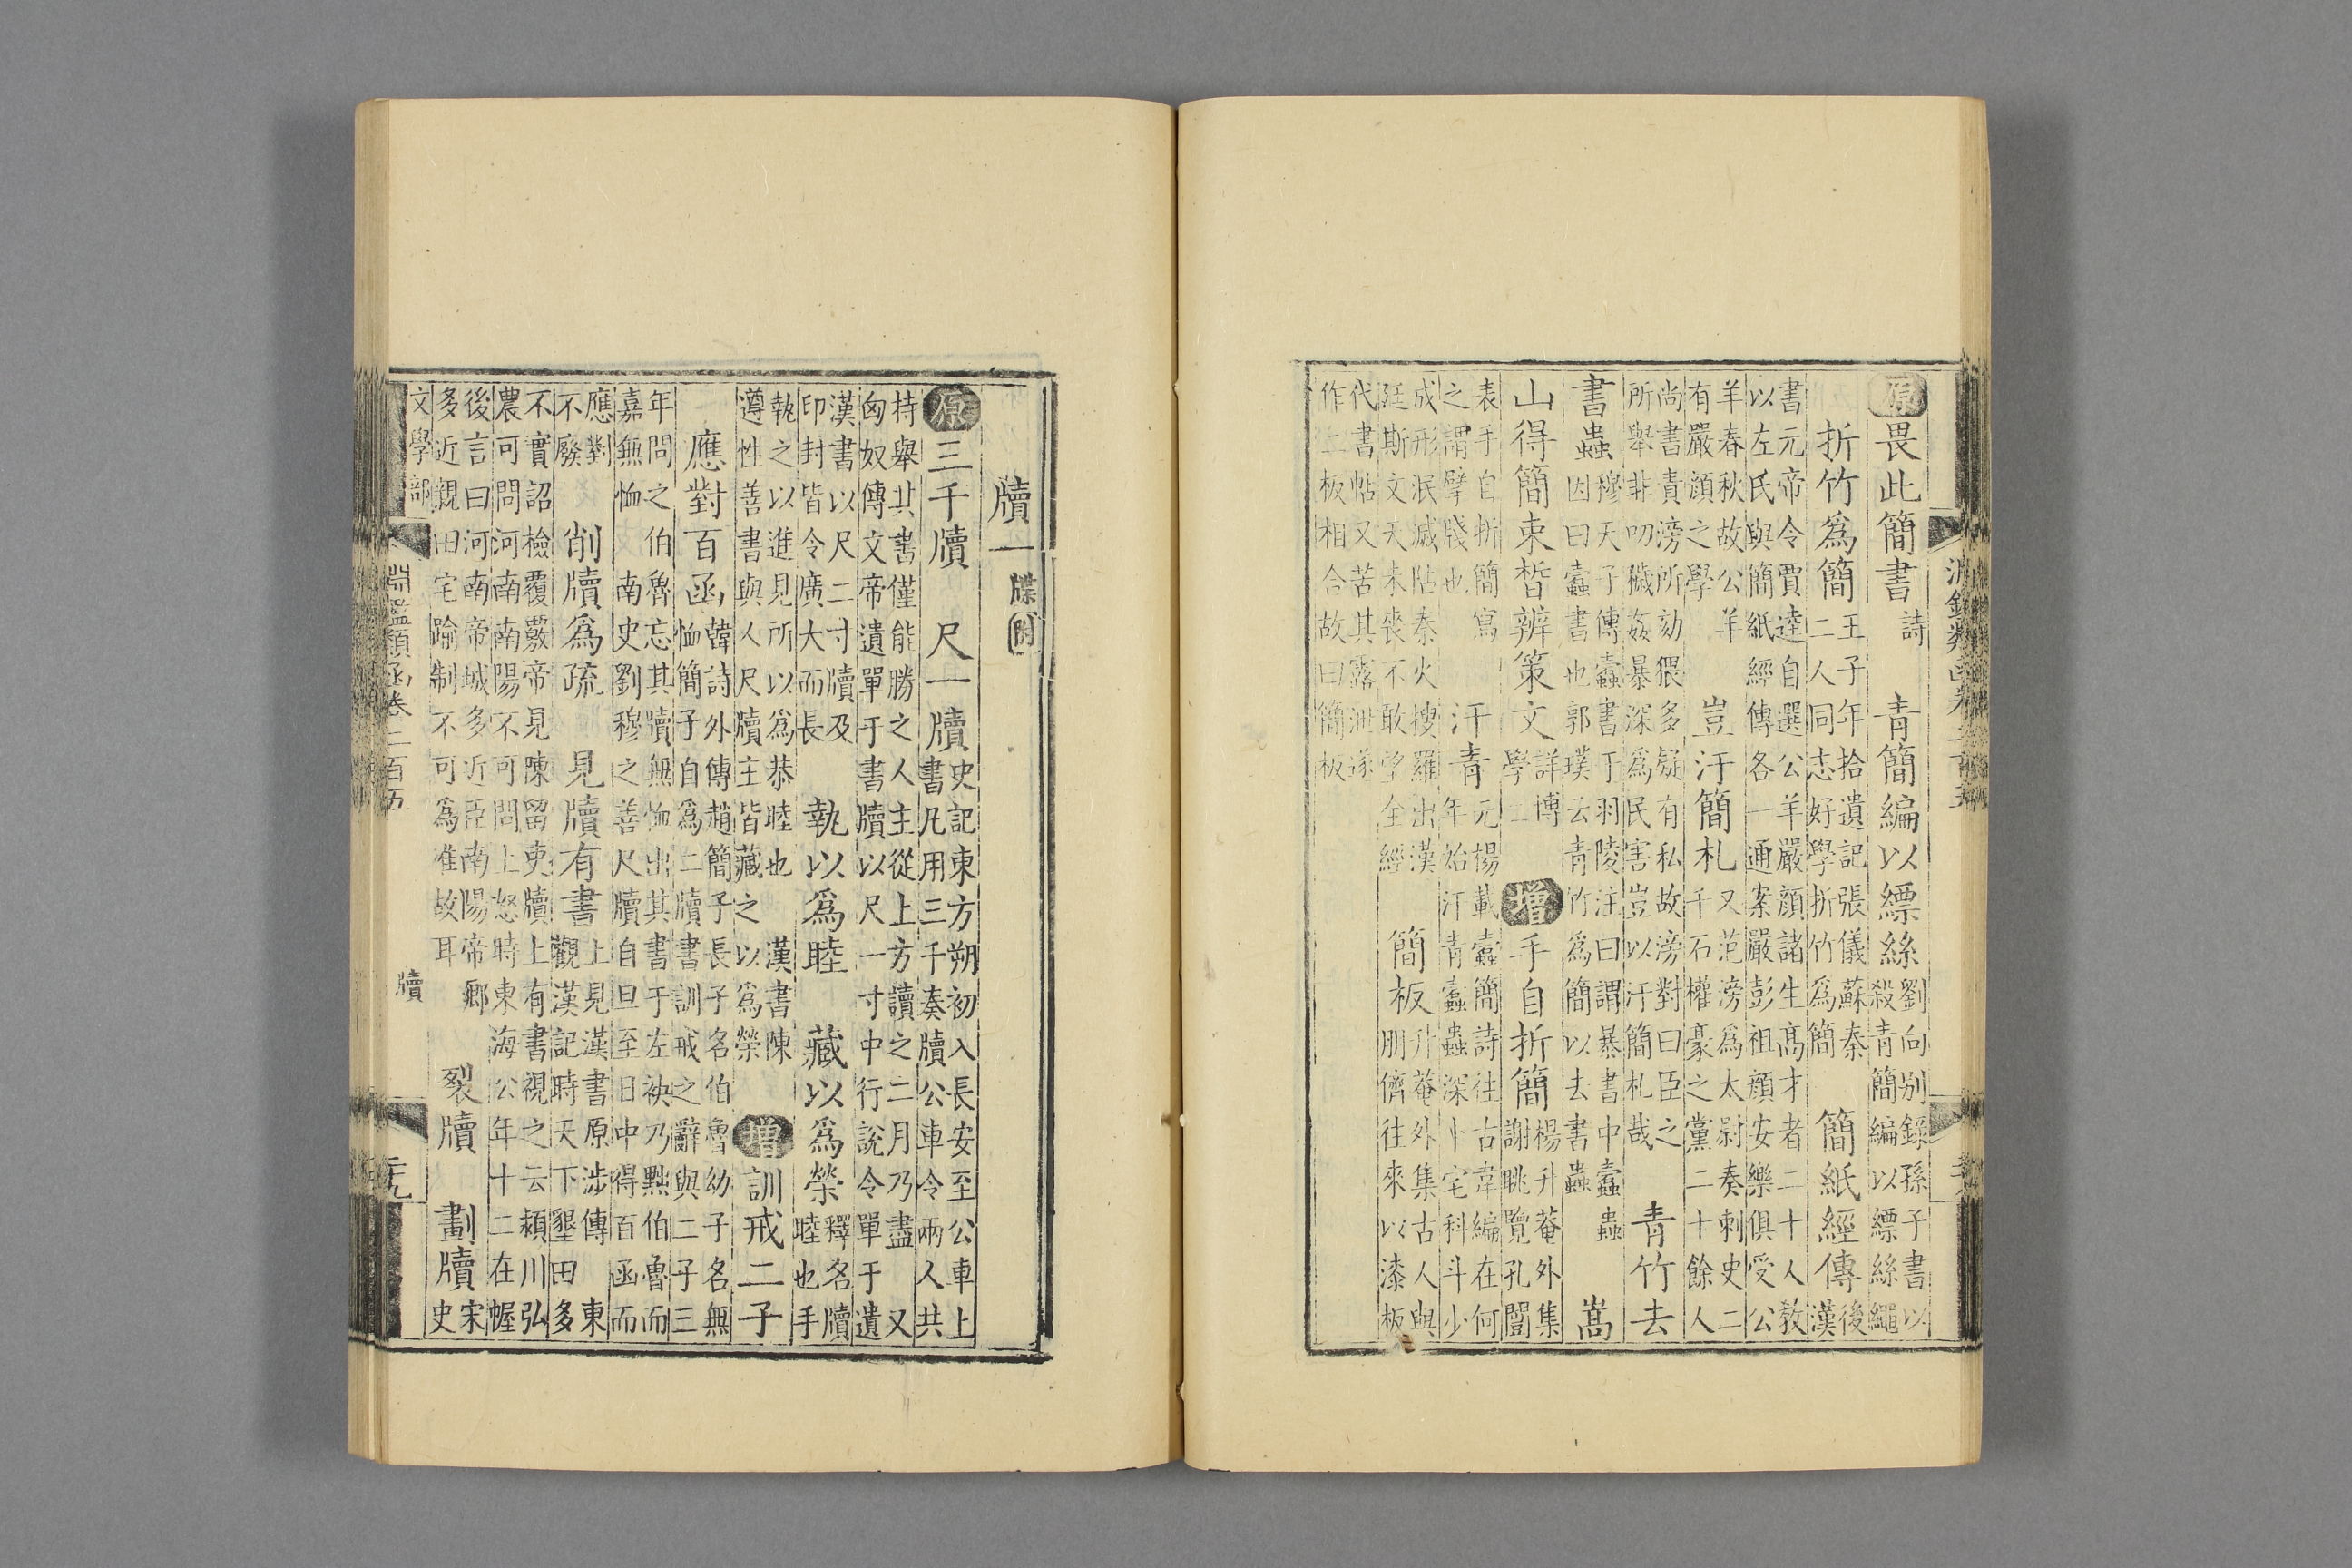 淵鑑類函卷二百五
二十八
原畏此簡書詩　青簡編以縹絲劉向别錄孫子書以殺青簡編以縹絲繩
折竹爲簡王子年拾遺記張儀蘇秦二人同志好學折竹爲簡　簡紙經傳後漢
書元帝令賈逵自選公羊嚴顔諸生髙才者二十人教以左氏與簡紙經傳各一通案嚴彭祖顔安樂俱受公
羊春秋故公羊有嚴顔之學　豈汙簡札又范滂爲太尉奏刺史二千石權豪之黨二十餘人
尚書責滂所劾猥多疑有私故滂對曰臣之所舉非叨穢姦暴深爲民害豈以汙簡札哉　青竹去
書蟲穆天子傳蠧書于羽陵注曰謂暴書中蠧蟲因曰蠧書也郭璞云青竹爲簡以去書蟲　嵩
山得簡束晳辨策文詳博學二　增手自折簡楊升菴外集謝眺覽孔闓
表手自折簡寫之謂擘牋也　汗青元楊載蠧簡詩往古韋編在何年始汗青蠧蟲深卜宅科斗少
成形泯滅阽秦火搜羅出漢廷斯文天未喪不敢望全經　簡板升菴外集古人與朋儕往來以漆板
代書帖又苦其露泄遂作二板相合故曰簡板
牘一牒附
原三千牘　尺一牘史記東方朔初入長安至公車上書凡用三千奏牘公車令兩人共
持舉其書僅能勝之人主從上方讀之二月乃盡　又匈奴傳文帝遺單于書牘以尺一寸中行說令單于遺
漢書以尺二寸牘及印封皆令廣大而長　執以爲睦　藏以爲榮釋名牘睦也手
執之以進見所以爲恭睦也　漢書陳遵性善書與人尺牘主皆藏之以爲榮　增訓戒二子
應對百函韓詩外傳趙簡子長子名伯魯幼子名無恤簡子自爲二牘書訓戒之辭與二子三
年問之伯魯忘其牘無恤出其書于左袂乃黜伯魯而嘉無恤　南史劉穆之善尺牘自旦至日中得百函而
應對不廢　削牘爲疏　見牘有書上見漢書原涉傳　東觀漢記時天下墾田多
不實詔檢覆覈帝見陳留吏牘上有書視之云潁川弘農可問河南南陽不可問上怒時東海公年十二在幄
後言曰河南帝城多近臣南陽帝鄉多近親田宅踰制不可爲准故耳　裂牘　劃牘宋史
文學部
淵鑑類函卷二百五
牘
二十九